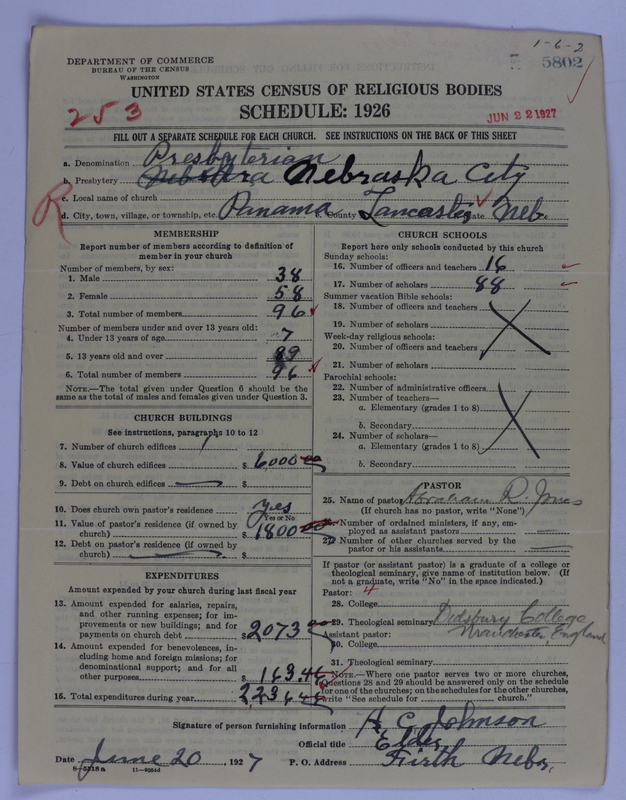 1-6-2
5802
DEPARTMENT OF COMMERCE
BUREAU OF THE CENSUS
WASHINGTON
UNITED STATES CENSUS OF RELIGIOUS BODIES
253
SCHEDULE: 1926
JUN 22 1927
FILL OUT A SEPARATE SCHEDULE FOR EACH CHURCH. SEE INSTRUCTIONS ON THE BACK OF THIS SHEET
a. Denomination Presbyterian
b. Presbytery Nebraska City
R
c. Local name of church
d. City, town, village, or township, etc. Panama County Lancaster State Neb.
MEMBERSHIP
Report number of members according to definition of
member in your church
Number of members, by sex:
1. Male 38
2. Female 58
3. Total number of members 96
Number of members under and over 13 years old:
4. Under 13 years of age 7
5. 13 years old and over 89
6. Total number of members 96
NOTE.—The total given under Question 6 should be the
same as the total of males and females given under Question 3.
CHURCH BUILDINGS
See instructions, paragraphs 10 to 12
7. Number of church edifices 1
8. Value of church edifices $ 6000
9. Debt on church edifices $
10. Does church own pastor's residence yes
Yes or No
11. Value of pastor's residence (if owned by
church) $ 1800
12. Debt on pastor's residence (if owned by
church) $
EXPENDITURES
Amount expended by your church during last fiscal year
13. Amount expended for salaries, repairs,
and other running expenses; for im-
provements or new buildings; and for
payments on church debt $ 2073
14. Amount expended for benevolences, in-
cluding home and foreign missions; for
denominational support; and for all
other purposes $ 163.46
15. Total expenditures during year $
CHURCH SCHOOLS
Report here only schools conducted by this church
Sunday schools:
16. Number of officers and teachers 16
17. Number of scholars 88
Summer vacation Bible schools:
18. Number of officers and teachers
19. Number of scholars
Week-day religious schools:
20. Number of officers and teachers
21. Number of scholars
Parochial schools:
22. Number of administrative officers
23. Number of teachers—
a. Elementary (grades 1 to 8)
b. Secondary
24. Number of scholars—
a. Elementary (grades 1 to 8)
b. Secondary
PASTOR
25. Name of pastor Abraham R. Jones
(If church has no pastor, write "None")
26. Number of ordained ministers, if any, em-
ployed as assistant pastors
27. Number of other churches served by the
pastor or his assistants
If pastor (or assistant pastor) is a graduate of a college or
theological seminary, give name of institution below. (If
not a graduate, write "No" in the space indicated.)
Pastor: 4
28. College
29. Theological seminary Didsbury College
Assistant pastor: Manchester, England
30. College
31. Theological seminary
NOTE.—Where one pastor serves two or more churches,
Questions 28 and 29 should be answered only on the schedule
for one of the churches; on the schedules for the other churches,
write "See schedule for church."
Signature of person furnishing information H. C. Johnson
Official title Elder
Date June 20, 1927 P. O. Address Firth Nebr.
8—5318a 11—9054d